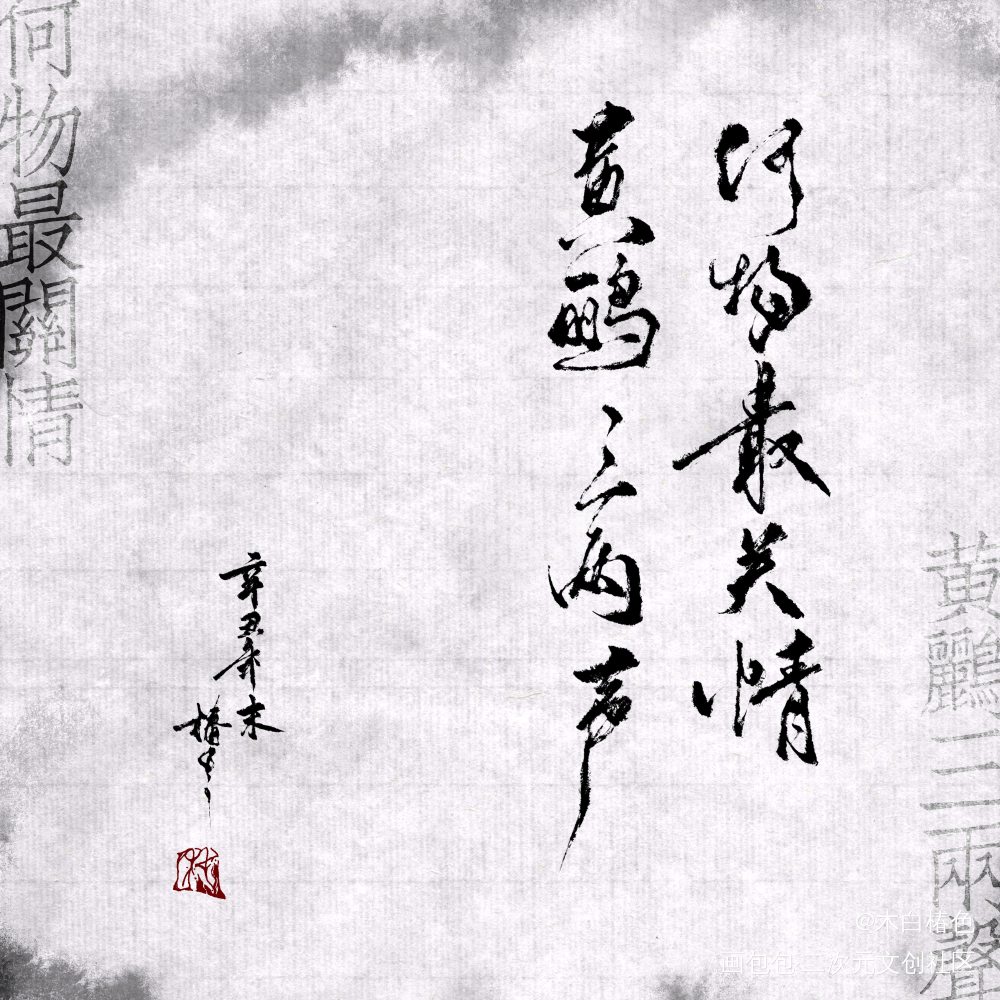 何物最关情
黄鹂三两声
辛丑年末
椿
何物最關情
黄鸝三兩聲
@木白椿色
画包包 二次元文创社区